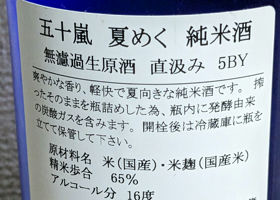 五十嵐　夏めく　純米酒
無濾過生原酒　直汲み　5BY
爽やかな香り、軽快で夏向きな純米酒です。搾
ったそのままを瓶詰めした為、瓶内に発酵由来
の炭酸ガスを含みます。開栓後は冷蔵庫に瓶を
立てて保管して下さい。
原材料名　米（国産）・米麹（国産米）
精米歩合　65%
アルコール分　16度